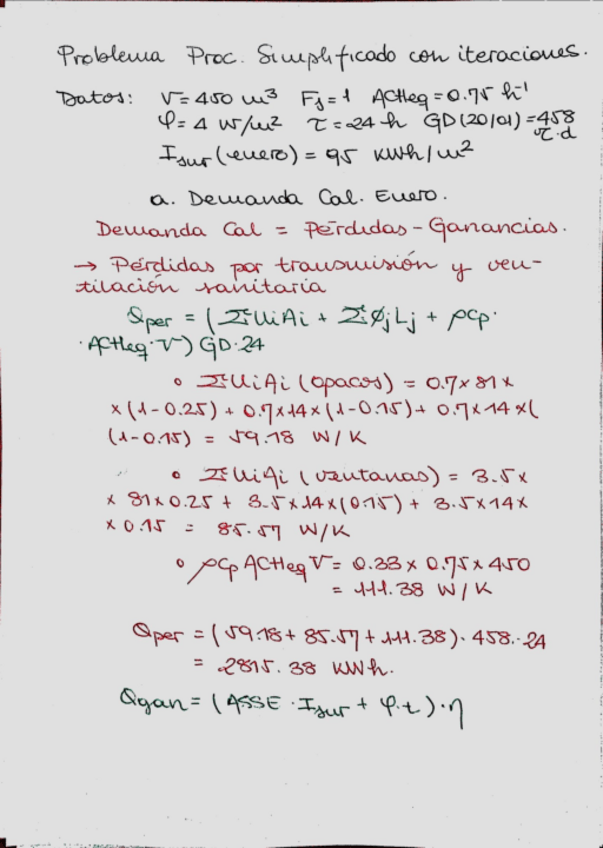 Problema Proc. Simplificado con iteraciones.
Datos: V = 450 m³ Fs = 1 ACHeq = 0.75 h⁻¹
φ = 4 W/m² τ = 24 h GD(20/01) = 458 ℃·d
Isur (enero) = 95 kWh/m²
a. Demanda Cal. Enero.
Demanda Cal = Pérdidas - Ganancias.
→ Pérdidas por transmisión y ven-
tilación sanitaria
Qper = (ΣUiAi + ΣφjLj + ρcp·
·ACHeq·V) GD·24
∘ ΣUiAi (opacos) = 0.7 x 81 x
x (1-0.25) + 0.7 x 14 x (1-0.15) + 0.7 x 14 x (
(1-0.15) = 59.18 W/K
∘ ΣUiAi (ventanas) = 3.5 x
x 81 x 0.25 + 3.5 x 14 x (0.15) + 3.5 x 14 x
x 0.15 = 85.57 W/K
∘ ρcp ACHeq V = 0.33 x 0.75 x 450
= 111.38 W/K
Qper = (59.18 + 85.57 + 111.38)·458·24
= 2815.38 kWh.
Qgan = (ASSE·Isur + φ·t)·η